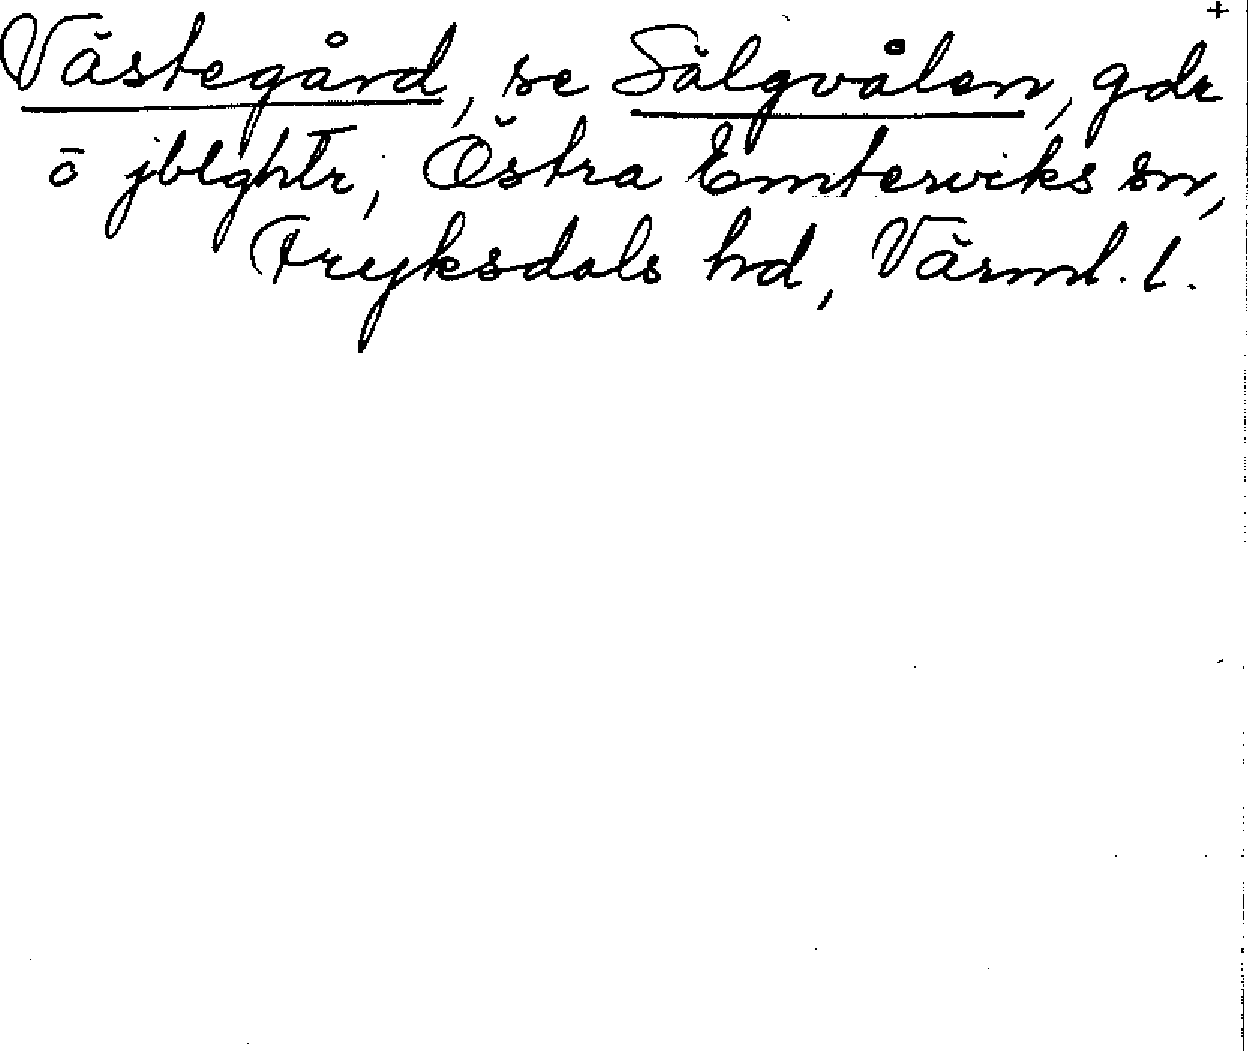 +
Västegård, se Sälgvålen, gdr
ō jblghtr, Östra Emterviks sn,
Fryksdals hd, Värml. l.